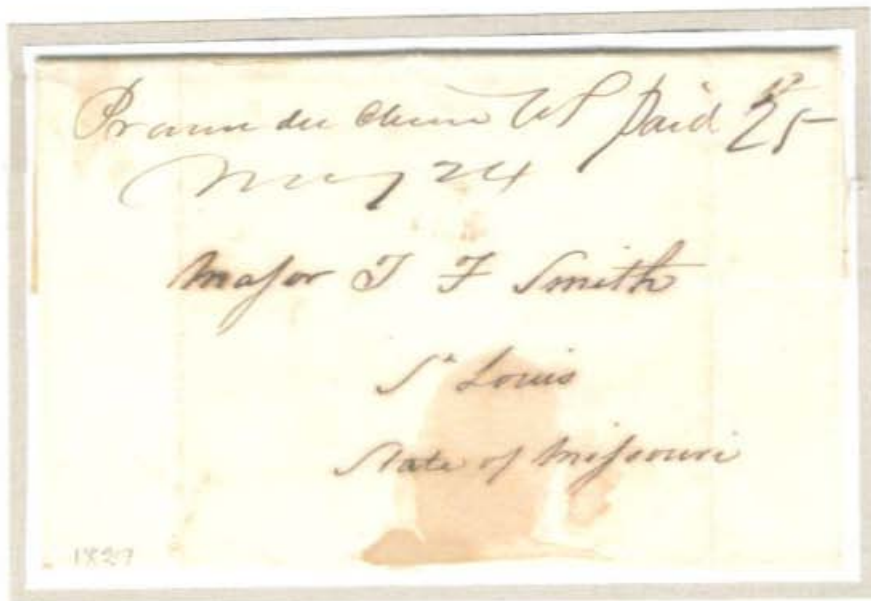 Prairie du Chien Paid 25
May 24
Major T F Smith
St Louis
State of Missouri
1829